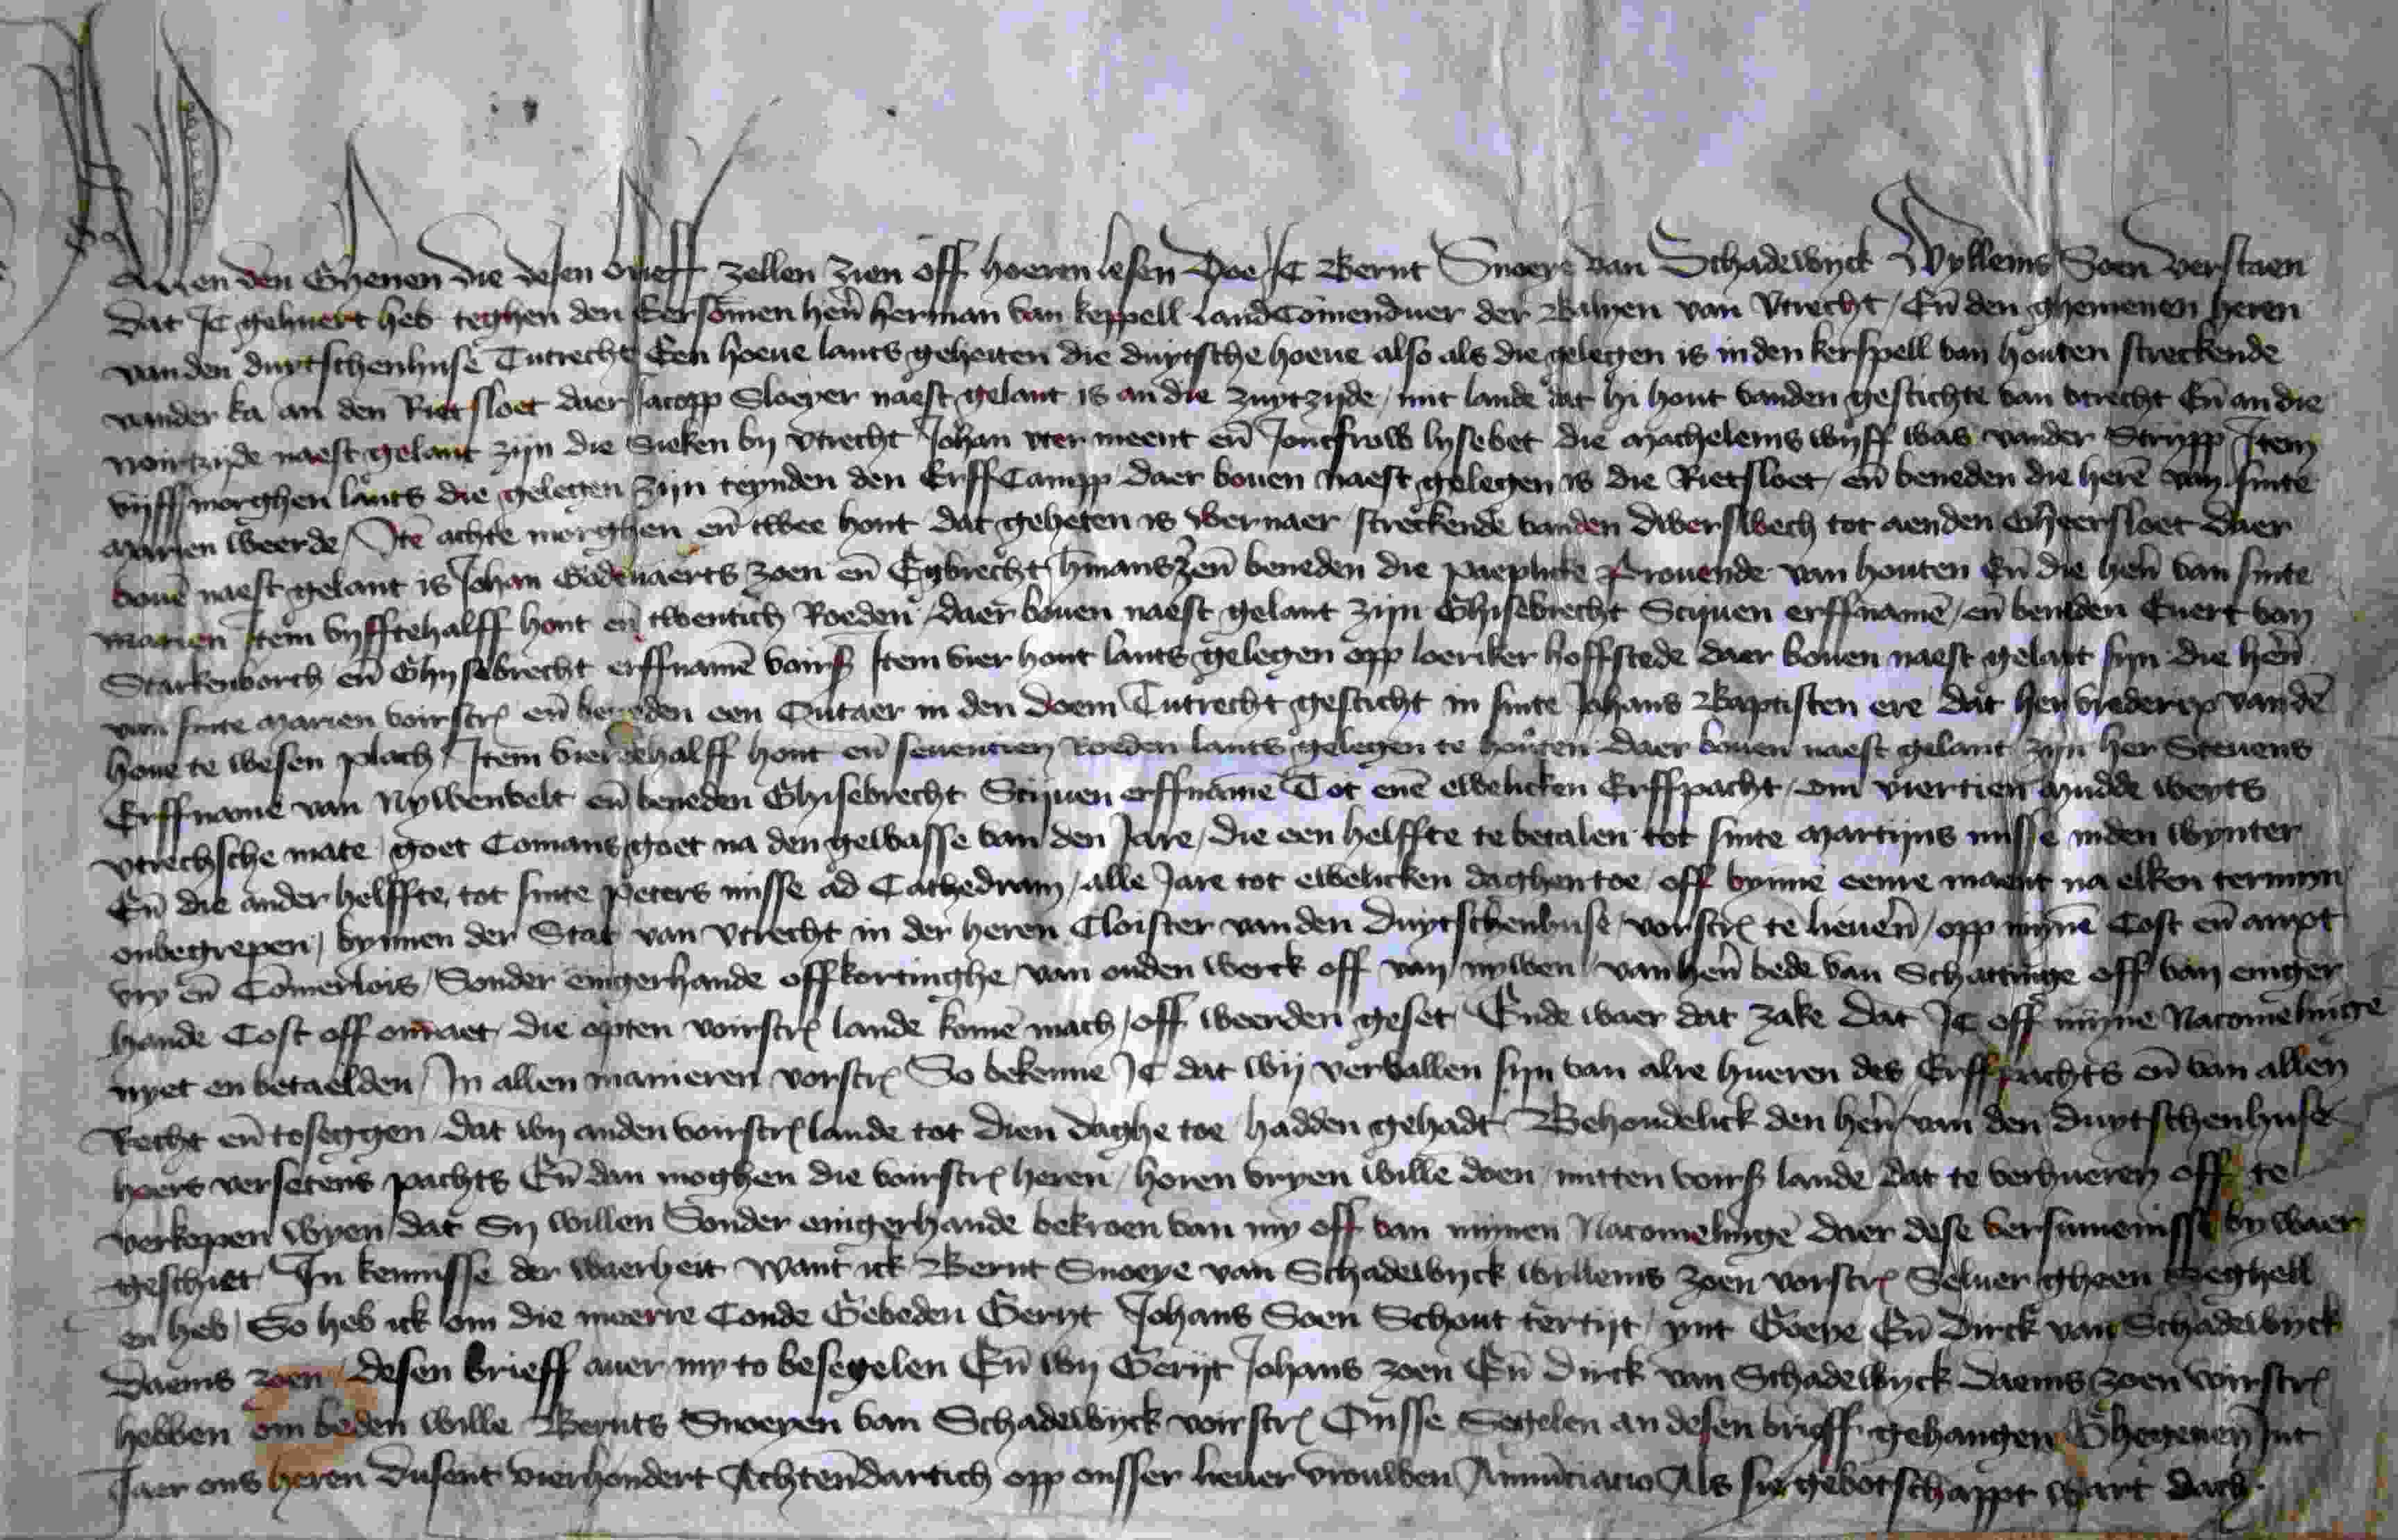 Allen den Ghenen die desen brieff zellen zien off hoeren lesen Doe Ic Bernt Snoeye van Schadewijck Wyllems Soen verstaen
dat Ic gehuert heb teghen den Eersomen hen herman van keppell landComenduer der Balyen van Utrecht / En den ghemenen heren
vanden duytschenhuse Tutrecht Een hoeue lants geheiten die duytsche hoeue also als die gelegen is inden kerspell van houten streckende
vander ka an den Rietsloet daer Jacopp Sloeyer naest gelant is an die zuytzijde / mit lande dat hi hout vanden gestichte van vtrecht En an die
noirtzijde naest gelant zijn die Sieken by vtrecht Johan vter meent en Joncfrow lysebet die Machelems wijff was vander Strypp Item
vijff morghen lants die gelegen zijn teynden den ErffCampp daer bouen naest gelegen is die Rietsloet / en beneden die here van sinte
Marien weerde / Ite achte morghen en twee hont dat geheten is wernaer streckende vanden dwerswech tot aenden Gheersloet daer
boue naest gelant is Johan Godenaerts zoen en Eybrecht hmans zen beneden die paeplicke Prouende van houten En die hen van sinte
marien Item vyfftehalff hont en twentich Roeden / daer bouen naest gelant zijn Ghisebrecht Scijuen erffname / en beneden Euert van
Starkenborch en Ghysebrecht erffname voirs Item vier hont lants gelegen opp loeriker hoffstede daer bouen naest gelant sijn die hen
van sinte Marien voirscr en beneden een Outaer in den doem Tutrecht gesticht in sinte Johans Baptisten ere dat hen vrederix vande
houe te wesen plach / Item vierdehalff hont en seuentien Roeden lants gelegen te houten daer bouen naest gelant zijn her Steuens
Erffname van Nywenvelt en beneden Ghisebrecht Scijuen erffname Tot ene ewelicken Erffpacht / om viertien Mudde weyts
vtrechsche mate / goet Comans goet na den gewasse van den Jare / die een helffte te betalen tot sinte Martijns misse inden wynter
En die ander helffte tot sinte Peters misse ad Cathedram / alle Jare tot ewelicken daghen toe / off bynne eenre maent na elken termijn
onbegrepen / bynnen der Stat van vtrecht in der heren Cloister vanden duytschenhuse vorscr te leueren / opp myne Cost en anxt
vry en Comerlois / Sonder enigerhande offkortinghe / van ouden werck off van nywen / van hen bede van Schattinge off van eniger
hande Cost off onraet die opten voirscr lande kome mach / off weerden geset Ende waer dat zake dat Ic off myne Nacomelinge
nyet en betaelden / In allen manieren vorscr So bekenne Ic dat wij vervallen sijn van alre hueren des Erffpachts en van allen
Recht en toseggen / dat wij anden voirscr lande tot dien daghe toe hadden gehadt Behoudelick den hen van den duytschenhuse
hoers versetens pachts En dan moghen die voirscr heren / horen vryen wille doen mitten voirs lande dat te verhueren off te
verkopen wyen dat Sy willen Sonder enigerhande bekroen van my off van mynen Nacomelinge daer dese versumenisse by waer
geschiet In kennisse der waerheit want ick Bernt Snoeye van Schadewijck wyllems zoen vorscr Seluer gheen Zeghell
en heb / So heb ick om die meerre Conde Gebeden Gerijt Johans Soen Schout tertijt ynt Goeye En Dirck van Schadewijck
Daems zoen desen brieff auer my to besegelen En wij Gerijt Johans zoen En Dirck van Schadewijck Daems zoen voirscr
hebben om beden wille Bernts Snoeyen van Schadewijck voirscr Onsse Segelen an desen brieff gehangen Ghegeuen Int
Jaer ons heren dusent vierhondert Achtendartich opp onsser lieuer vrouwen Annunciacio Als sie gebotschappt wart dach